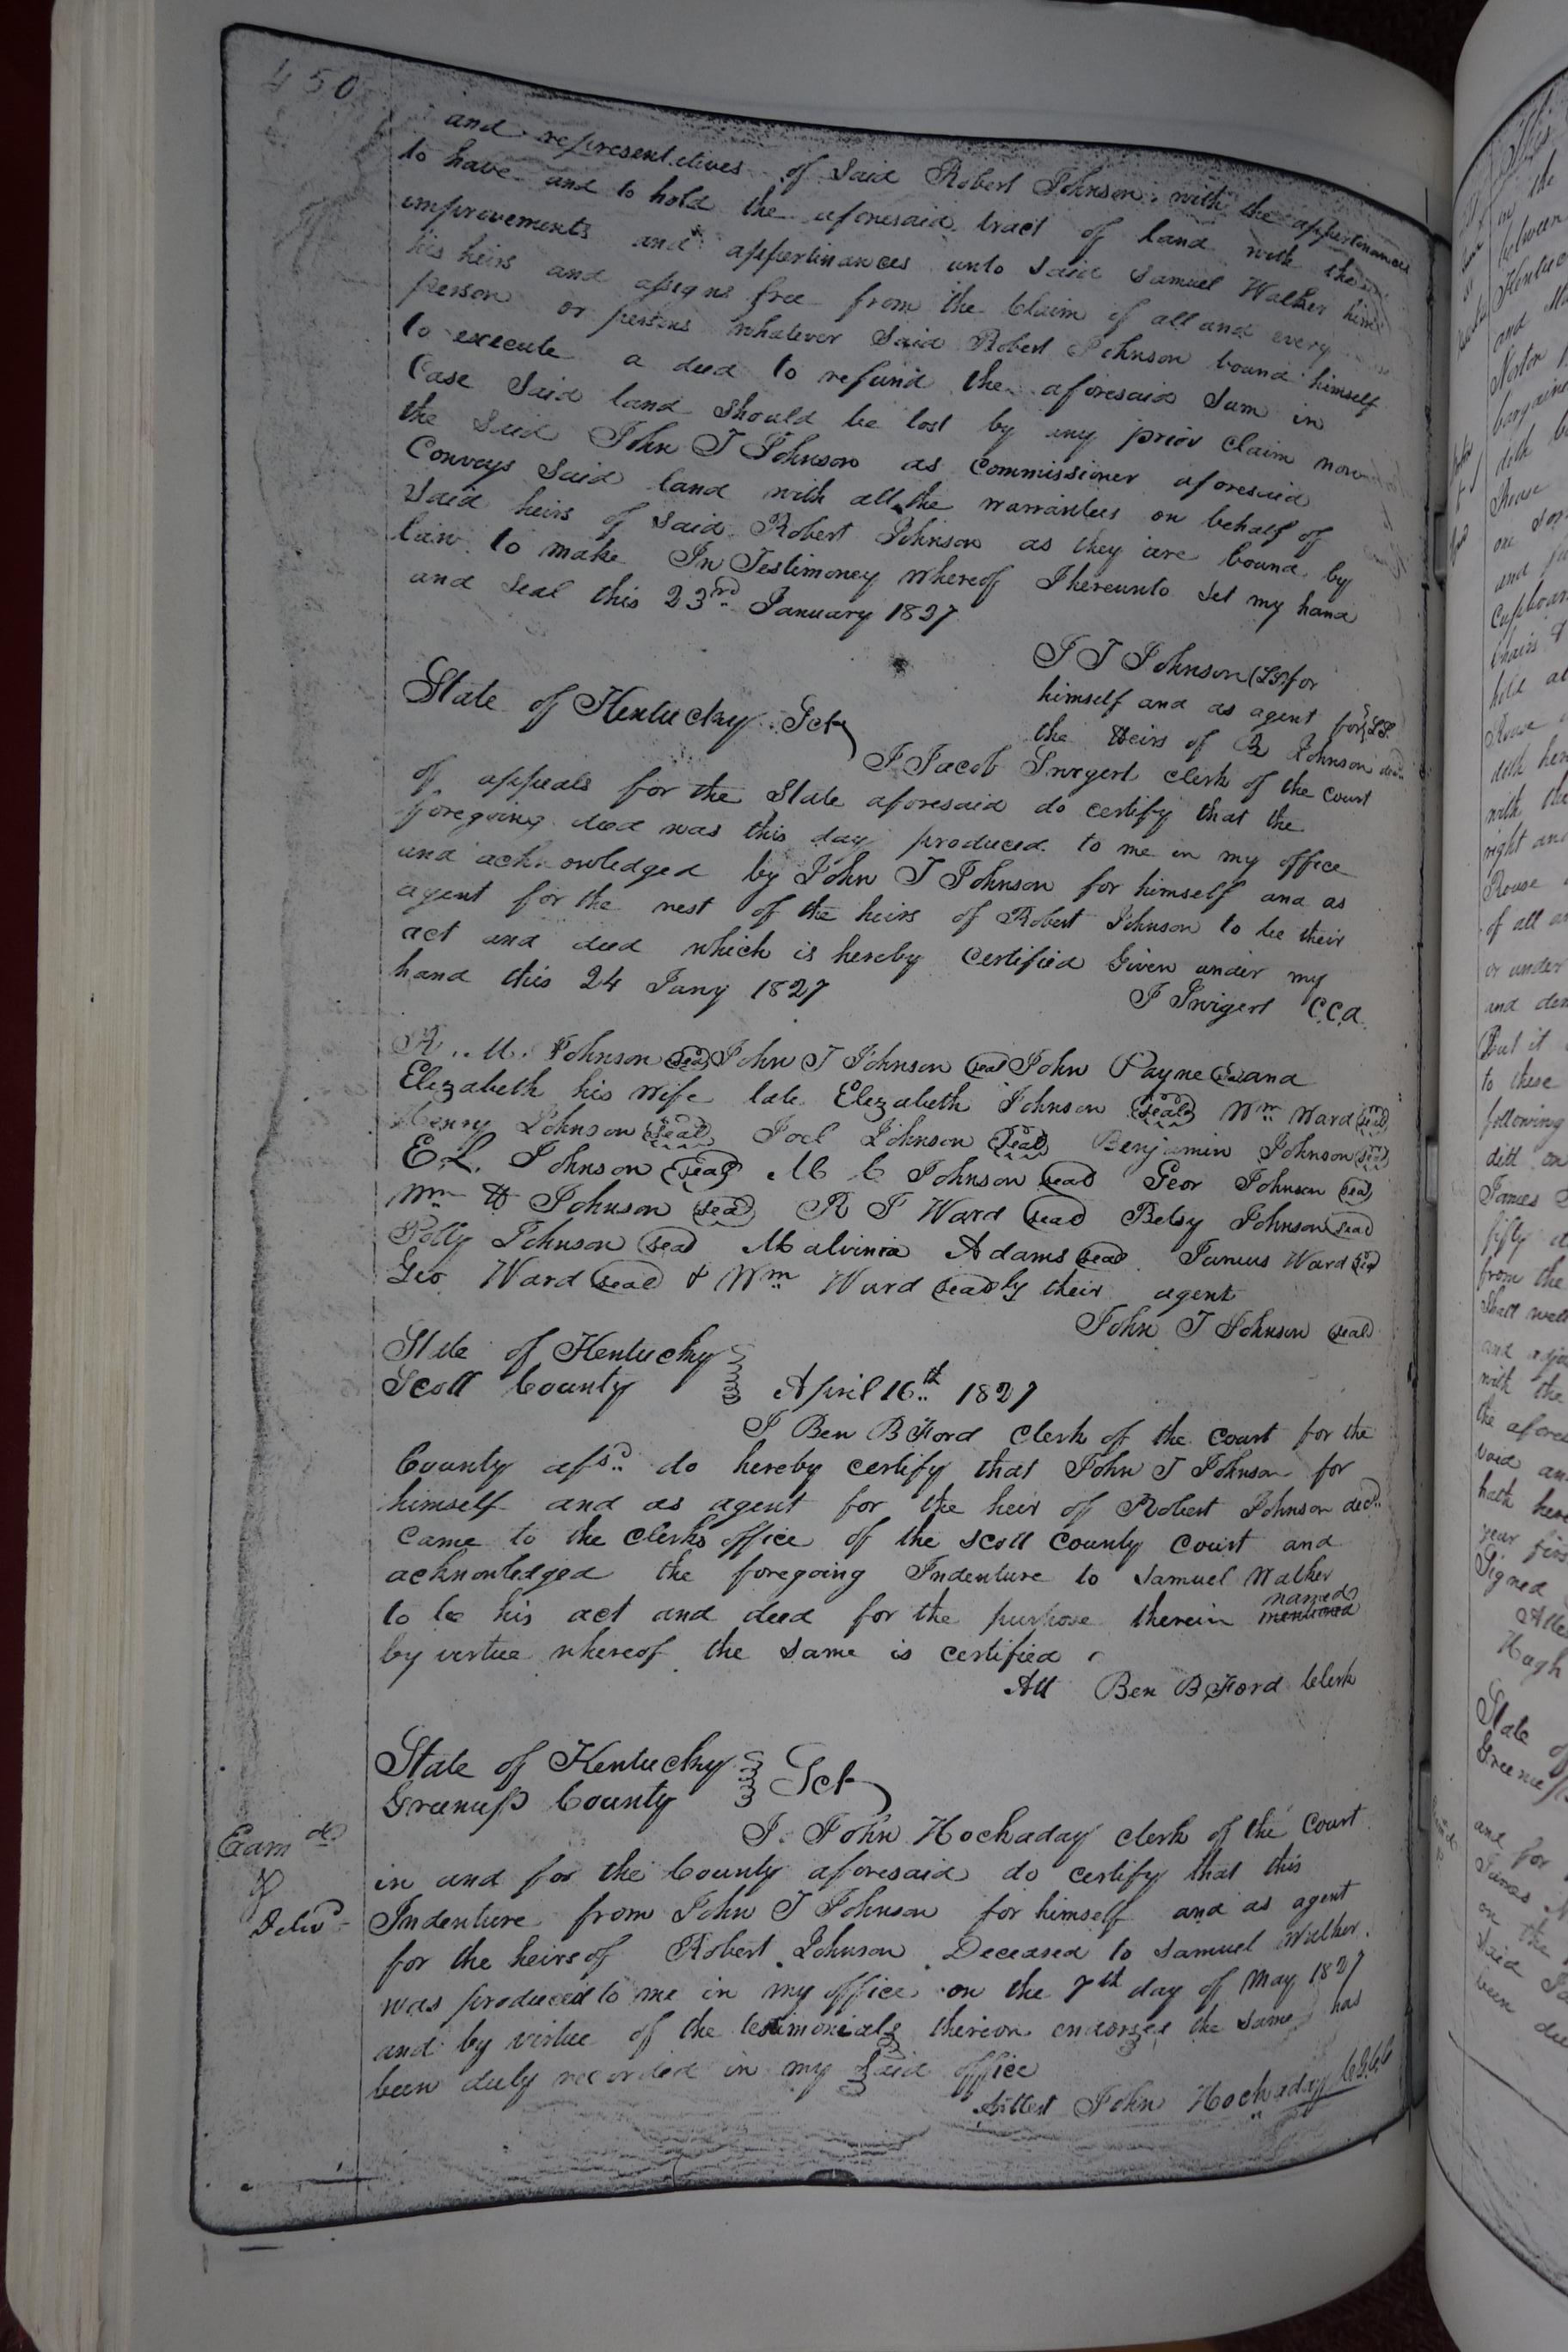 450
and representatives of Said Robert Johnson, with the appertinances
to have and to hold the aforesaid tract of land with the
improvements and appertinances unto Said Samuel Walker him
his heirs and assigns free from the Claim of all and every
person or persons whatever Said Robert Johnson bound himself
to execute a deed to refund the aforesaid Sum in
Case Said land Should be lost by any prior Claim now
the Said John T Johnson as Commissioner aforesaid
Conveys Said land with all the warrantees on behalf of
Said heirs of Said Robert Johnson as they are bound by
law to make In Testimoney whereof I hereunto Set my hand
and Seal this 23rd January 1827
J T Johnson (LS) for
himself and as agent for LS.
the Heirs of R Johnson decd
State of Kentucky Sct
I Jacob Swigert clerk of the court
of appeals for the State aforesaid do certify that the
foregoing deed was this day produced to me in my office
and acknowledged by John T Johnson for himself and as
agent for the rest of the heirs of Robert Johnson to be their
act and deed which is hereby Certified Given under my
hand this 24 Jany 1827
J Swigert C.C.A.
R. M. Johnson seal John T Johnson seal John Payne seal and
Elizabeth his wife late Elizabeth Johnson seal Wm Ward seal
Henry Johnson seal Joel Johnson seal Benjamin Johnson seal
E. L. Johnson seal M C Johnson seal Geor Johnson seal
Wm H Johnson seal R J Ward seal Betsy Johnson seal
Polly Johnson seal Malvinia Adams seal Junius Ward seal
Geo Ward seal & Wm Ward seal by their agent
John T Johnson seal
State of Kentucky
Scott County April 16th 1827
I Ben B Ford Clerk of the Court for the
County afsd do hereby certify that John T Johnson for
himself and as agent for the heir of Robert Johnson decd
Came to the Clerks office of the Scott County Court and
acknowledged the foregoing Indenture to Samuel Walker
named
to be his act and deed for the purpose therein mentioned
by virtue whereof the same is certified
Att Ben B Ford Clerk
State of Kentucky
Greenup County Sct
I John Hockaday clerk of the Court
in and for the County aforesaid do certify that this
Exam d
&
Delivd
Indenture from John T Johnson for himself and as agent
for the heirs of Robert Johnson Deceased to Samuel Walker
was produced to me in my office on the 7th day of May 1827
and by virtue of the testimonials thereon endorsed the Same has
been duly recorded in my Said office
Attest John Hockaday
in the
between
and
Norton
bargaine
doth
one
and
Cupboar
Chairs &
hold
Rouse
doth her
with the
right and
Rouse
of all
or under
and
But it
to these
following
ditt on
James
fifty
from the
Shall well
and
with the
the afore
void and
hath here
year firs
Signed
Hugh
State of
Greenup
and for
James
on the
Said
been du